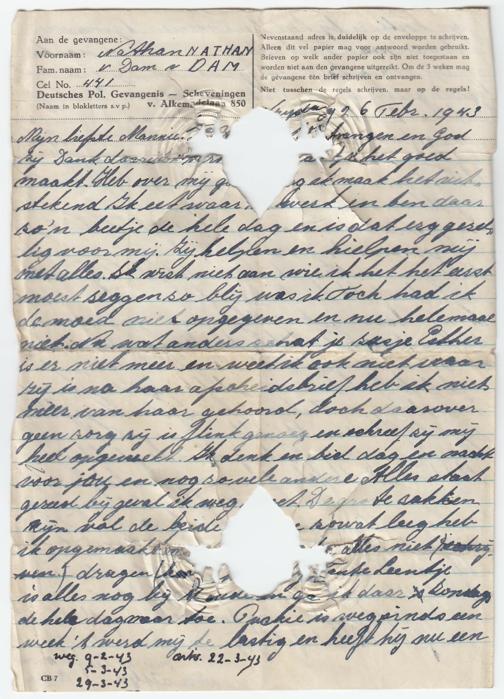 Aan de gevangene:
Voornaam: Nathan NATHAN
Fam.naam: v. Dam v DAM
Cel No. 471
Deutsches Pol. Gevangenis — Scheveningen
(Naam in blokletters s.v.p.) v. Alkemadelaan 850
Nevenstaand adres is duidelijk op de enveloppe te schrijven.
Alleen dit vel papier mag voor antwoord worden gebruikt.
Brieven op welk ander papier ook zijn niet toegestaan en
worden niet aan den gevangene uitgereikt. Om de 3 weken mag
de gevangene één brief schrijven en ontvangen.
Niet tusschen de regels schrijven, maar op de regels!
26 Febr. 1943
Mijn liefste Mannie. ontvangen en God
zij Dank daarvoor het goed
maakt. Heb over mij ik maak het uit-
stekend Ik eet waar ik werk en ben daar
zo'n beetje de hele dag en is dat erg gezel-
lig voor mij. Zij helpen en hielpen mij
met alles. Ik wist niet aan wie ik het het eerst
moest zeggen zo blij was ik Toch had ik
de moed niet opgegeven en nu helemaal
niet. wat anders schat je zusje Esther
is er niet meer en weet ik ook niet waar
zij is na haar afscheidsbrief heb ik niet
meer van haar gehoord, doch daarover
geen zorg zij is flink genoeg en schreef zij mij
heel opgewekt. Ik denk en bid dag en nacht
voor jou en nog zovele andere Alles staat
gereed bij geval ik weg moet. De grote zakken
zijn vol de beide zowat leeg heb
ik opgemaakt alles niet (schrij
ven) dragen Leentje
is alles nog bij en ga ik daar Zondags
de hele dag naar toe. is weg sinds een
week 't werd mij te lastig en heeft hij nu een
weg 9-2-43 antw. 22-3-43
5-3-43
29-3-43
CB 7